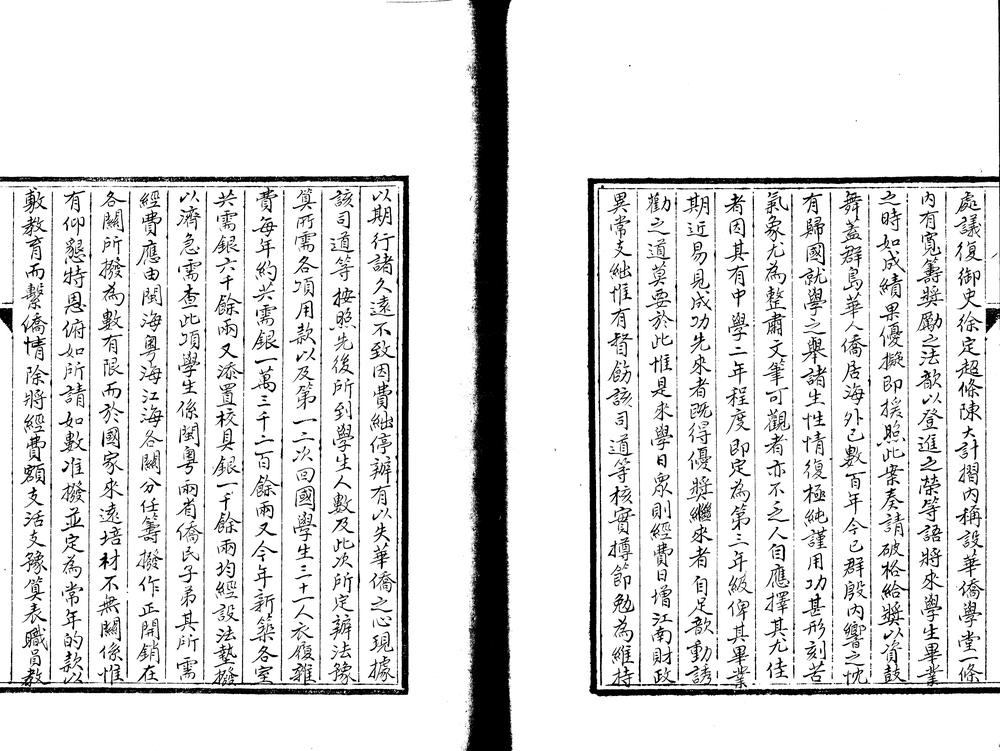 處議復御史徐定超條陳大計摺內稱設華僑學堂一條
內有寬籌獎勵之法歆以登進之榮等語將來學生畢業
之時如成績果優擬即援照此案奏請破格給獎以資鼓
舞蓋群島華人僑居海外已數百年今已群殷內嚮之忱
有歸國就學之舉諸生性情復極純謹用功甚形刻苦
氣象尤為整肅文筆可觀者亦不乏人自應擇其尤佳
者因其有中學二年程度即定為第三年級俾其畢業
期近易見成功先來者既得優獎繼來者自足歆動誘
勸之道莫要於此惟是來學日眾則經費日增江南財政
異常支絀惟有督飭該司道等核實撙節勉為維持
以期行諸久遠不致因費絀停辦有以失華僑之心現據
該司道等按照先後所到學生人數及此次所定辦法豫
算所需各項用款以及第一二次回國學生三十一人衣履雜
費每年約共需銀一萬三千二百餘兩又今年新築各室
共需銀六千餘兩又添置校具銀一千餘兩均經設法墊撥
以濟急需查此項學生係閩粵兩省僑民子弟其所需
經費應由閩海粵海江海各關分任籌撥作正開銷在
各關所撥為數有限而於國家來遠培材不無關係惟
有仰懇特恩俯如所請如數准撥並定為常年的款以
敷教育而繫僑情除將經費額支活支豫算表職員教